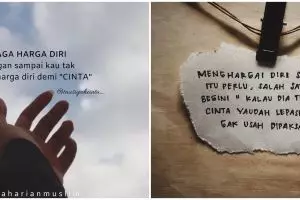 AGA HARGA DIRI
gan sampai kau tak
harga diri demi "CINTA"
aharianmuslim
MENGHARGAI DIRI S
ITU PERLU, SALAH SA
BEGINI " KALAU DIA T
CINTA YAUDAH LEPAS
GAK USAH DIPAKS